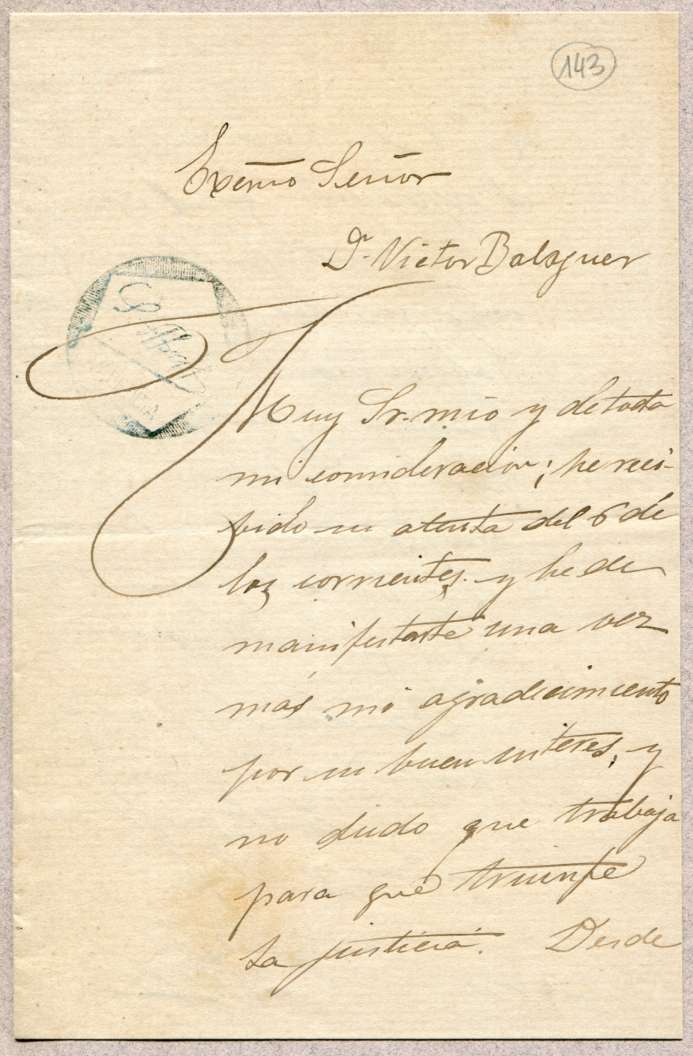 143
Excmo Señor
Dn Victor Balaguer
Muy Sr. mio y de toda
mi consideracion; he reci-
bido su atenta del 6 de
los corrientes. y he de
manifestarle una vez
más mi agradecimiento
por su buen interes, y
no dudo que trabaja
para que triunfe
la justicia. Desde